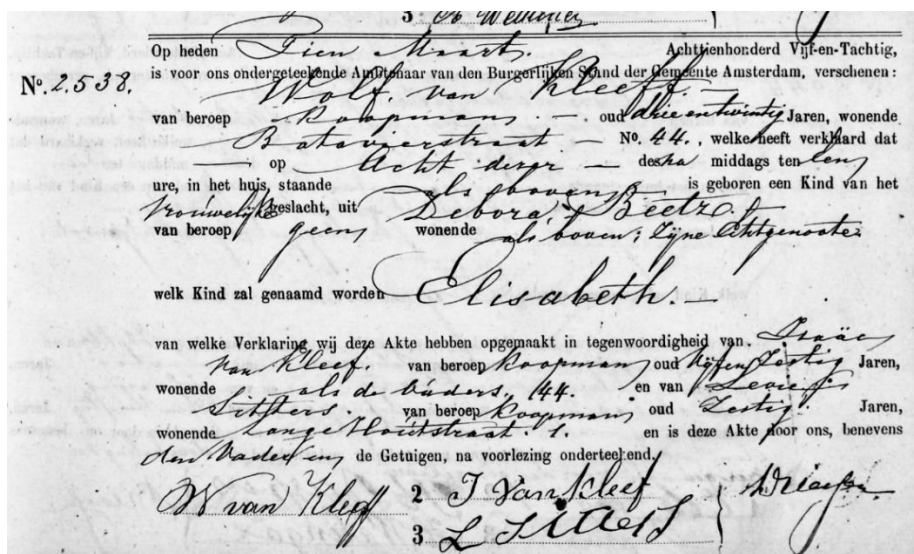 3
Op heden Tien Maart. Achttienhonderd Vijf-en-Tachtig,
is voor ons ondergeteekende Ambtenaar van den Burgerlijken Stand der Gemeente Amsterdam, verschenen:
No. 2538. Wolf van Kleeff.
van beroep koopman oud drieentwintig Jaren, wonende
Batavierstraat No. 44., welke heeft verklaard dat
op Acht dezer des na middags ten een
ure, in het huis, staande als boven, is geboren een Kind van het
vrouwelijke geslacht, uit Debora Beetz
van beroep geen wonende als boven; Zijne Echtgenoote
welk Kind zal genaamd worden Elisabeth.
van welke Verklaring wij deze Akte hebben opgemaakt in tegenwoordigheid van Isaäc
van Kleef. van beroep koopman oud Vijfenzestig Jaren,
wonende als de vader, 44. en van Levie
Sitters. van beroep koopman oud Zestig. Jaren,
wonende Lange Houtstraat. 1. en is deze Akte door ons, benevens
den Vader en de Getuigen, na voorlezing onderteekend.
W van Kleeff 2 I van Kleef
3 L Sitters